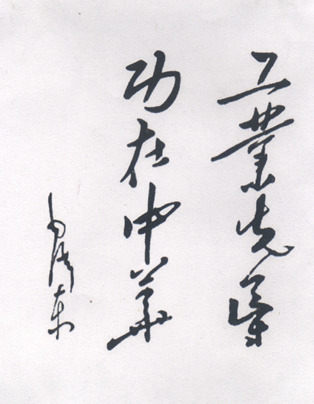 工業先導
功在中華
毛澤東